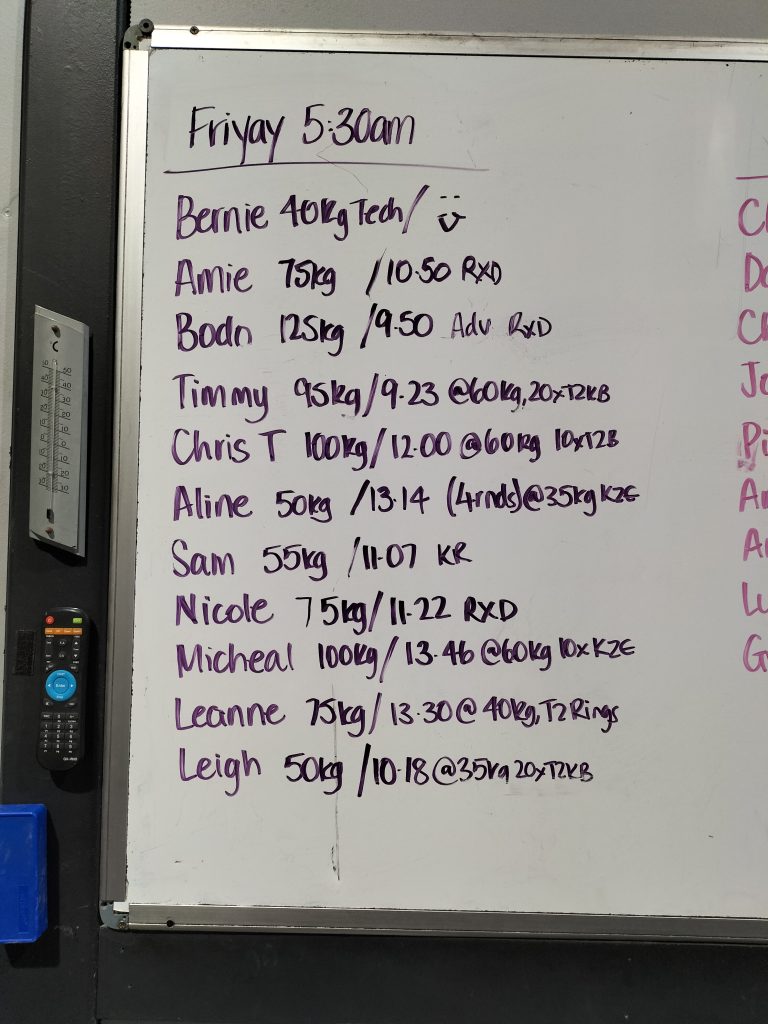 Friyay 5:30am
Bernie 40kg Tech/
Amie 75kg /10.50 RXD
Bodn 125kg /9.50 Adv RXD
Timmy 95kg/9.23 @60kg, 20xT2KB
Chris T 100kg/12.00 @60kg 10xT2B
Aline 50kg /13.14 (4rnds)@35kg K2E
Sam 55kg /11.07 KR
Nicole 75kg/11.22 RXD
Micheal 100kg/13.46 @60kg 10xK2E
Leanne 75kg/13.30 @ 40kg, T2Rings
Leigh 50kg /10.18 @35kg 20xT2KB